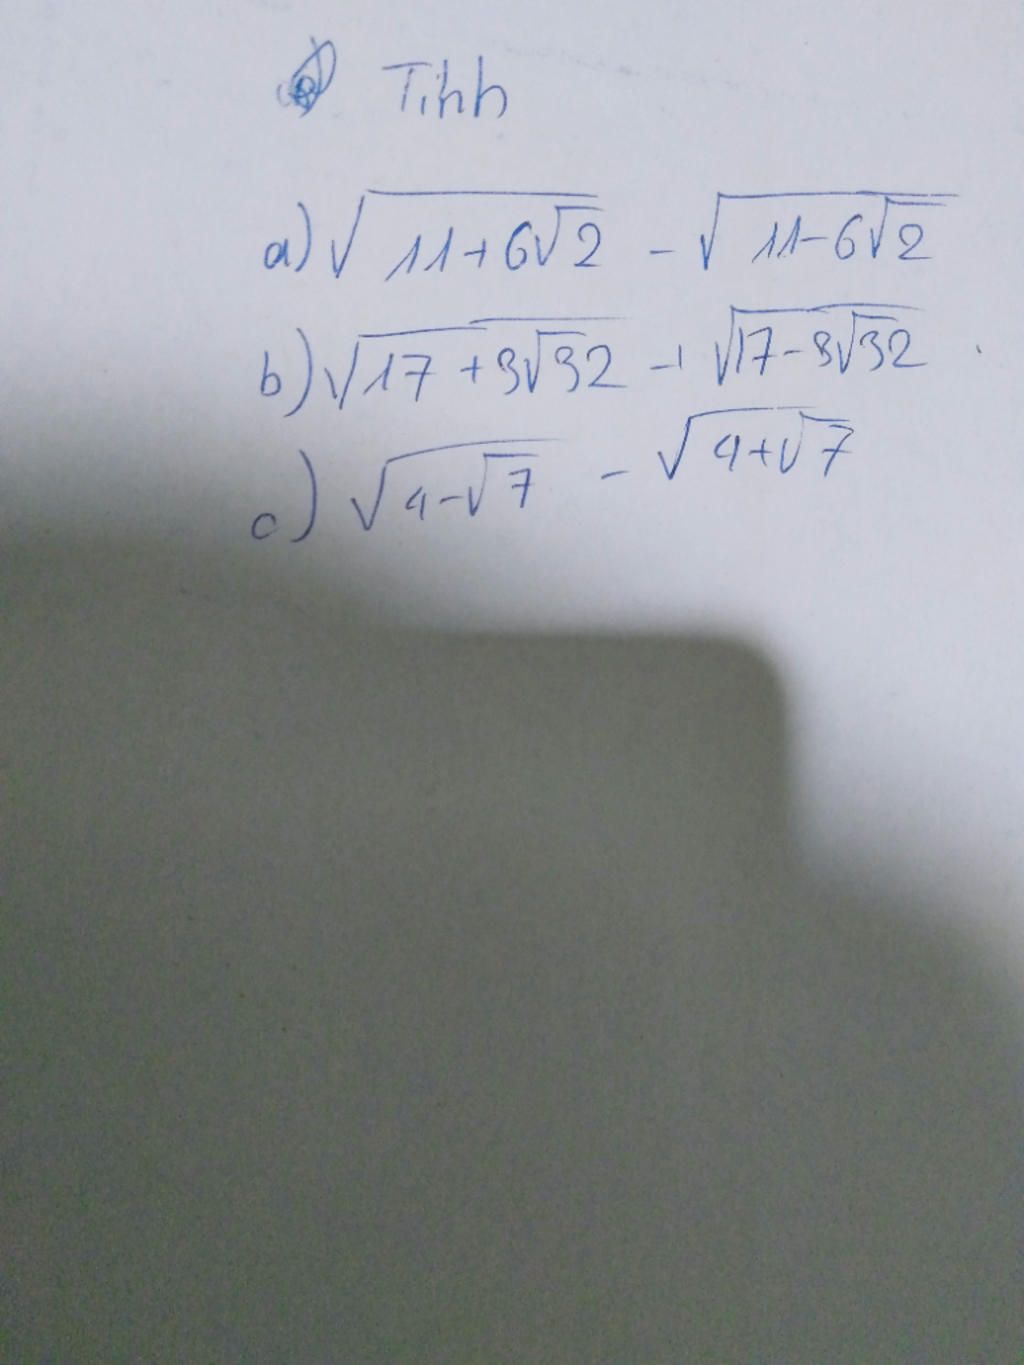 Tính
a) √(11+6√2) - √(11-6√2)
b) √(17+3√32) + √(17-3√32)
c) √(4-√7) - √(4+√7)